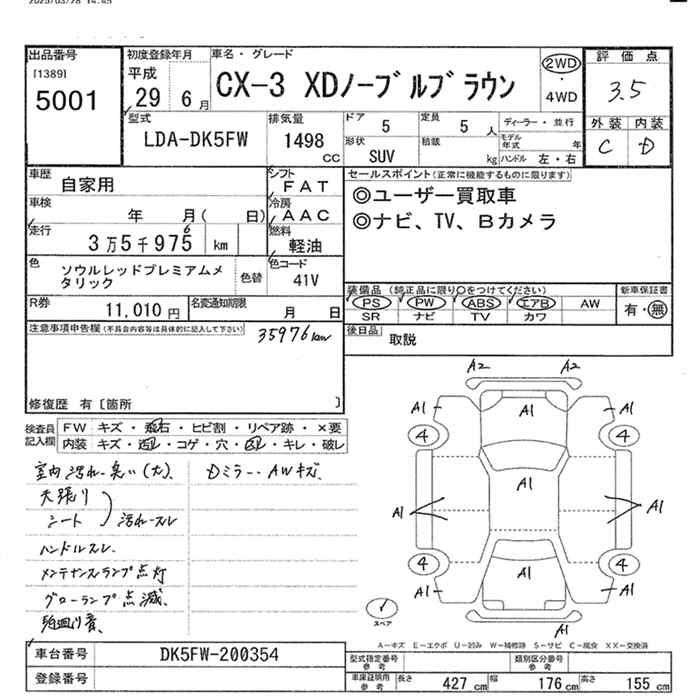 2025/03/28 14:45
出品番号
[1389]
5001
初度登録年月
平成
29 6月
車名・グレード
CX-3 XDノーブルブラウン
2WD
・
4WD
評価点
3.5
外装 内装
C D
型式
LDA-DK5FW
排気量
1498
CC
ドア
5
定員
5人
形状
SUV
積載
kg
ディーラー・並行
モデル年式 年
ハンドル 左・右
車歴
自家用
シフト
FAT
車検
年 月( 日)
冷房
AAC
走行
3万5千975 km
6
燃料
軽油
色
ソウルレッドプレミアムメタリック
色替
色コード
41V
R券
11,010円
名変通知期限
月 日
セールスポイント(正常に機能するものに限ります)
◎ユーザー買取車
◎ナビ、TV、Bカメラ
装備品(純正品に限り○をつけてください)
PS PW ABS エアB AW
SR ナビ TV カワ
新車保証書
有・無
後日品
取説
注意事項申告欄(不具合内容等は具体的に記入して下さい)
35976km
修復歴 有〔箇所 〕
検査員記入欄
FW キズ・飛石・ヒビ割・リペア跡・×要
内装 キズ・汚レ・コゲ・穴・凹レ・キレ・破レ
室内汚れ・臭い(大)、
Dミラー・AWキズ、
天張り
シート
汚れスレ
ハンドルスレ
メンテナンスランプ点灯
グローランプ点滅、
A2 A2
A1 A1 A1
4 4
A1
A1 A1
4 4
A1
A1 A1
A1
スペア
A-キズ E-エクボ U-凹み W-補修跡 S-サビ C-腐食 XX-交換済
車台番号
DK5FW-200354
登録番号
型式指定番号
参考
類別区分番号
参考
車庫証明用
参考
長さ 427cm 幅 176cm 高さ 155cm